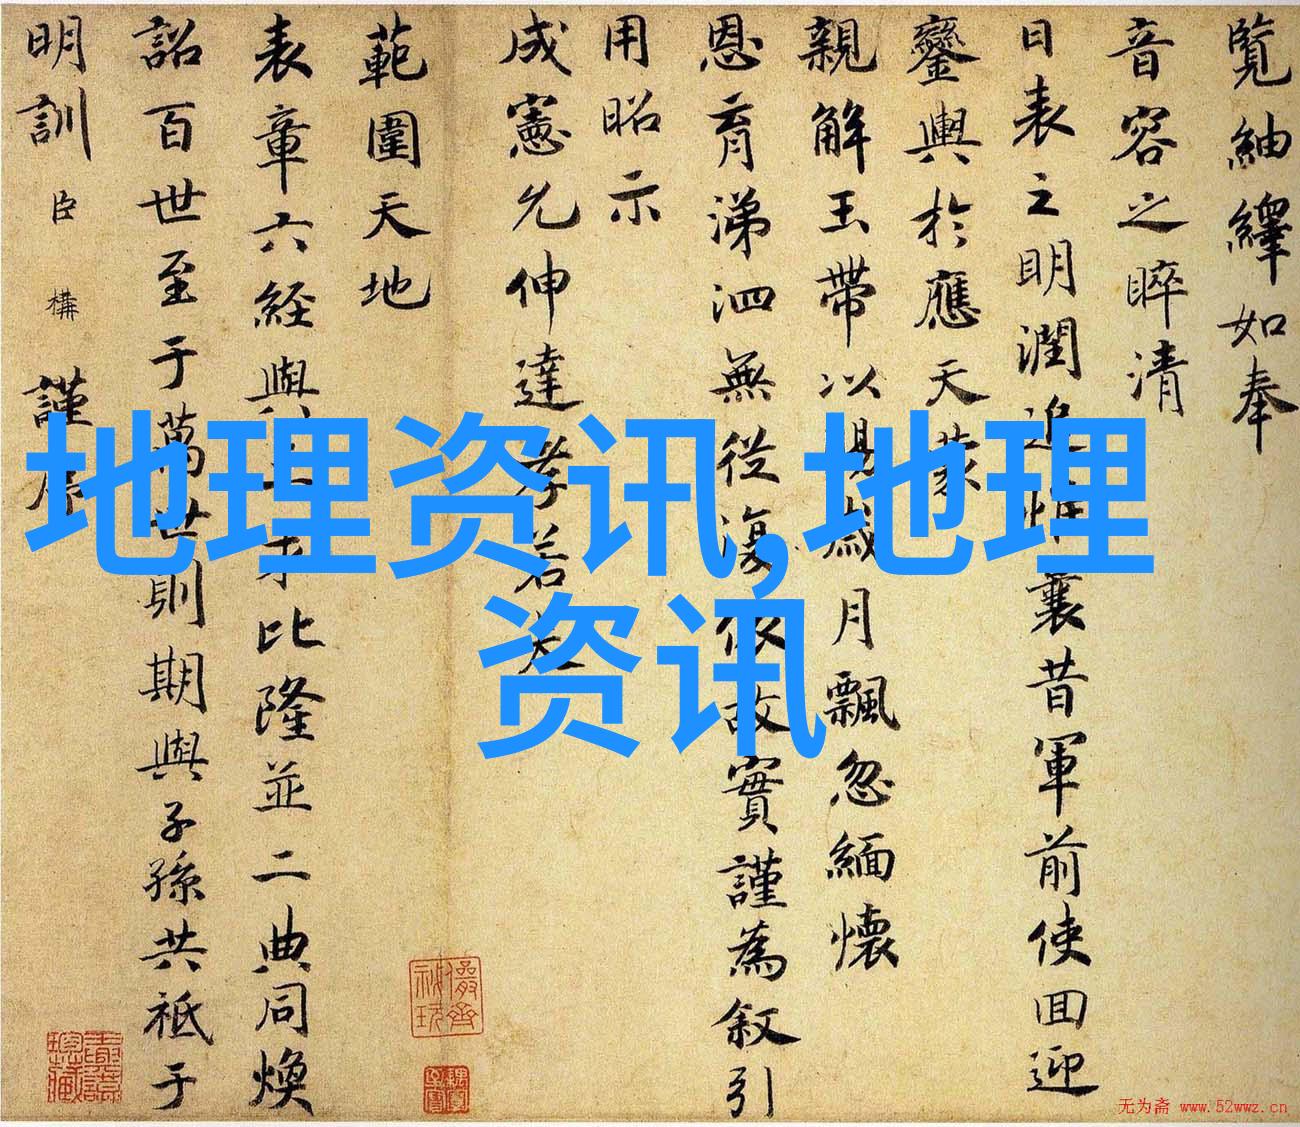 覽紬繹如奉
音容之睟清
日表之明潤追惟曩昔軍前使回迎
鑾輿於應天蒙
親解玉帶以賜歲月飄忽緬懷
恩育涕泗無從復依故實謹為叙引
用昭示
成憲允伸達孝若夫
範圍天地
表章六経與
比隆並二典同煥
詔百世至于萬世則期與子孫共祗于
明訓臣構謹序
地理资讯,地理
资讯
无为斋 www.52wwz.cn